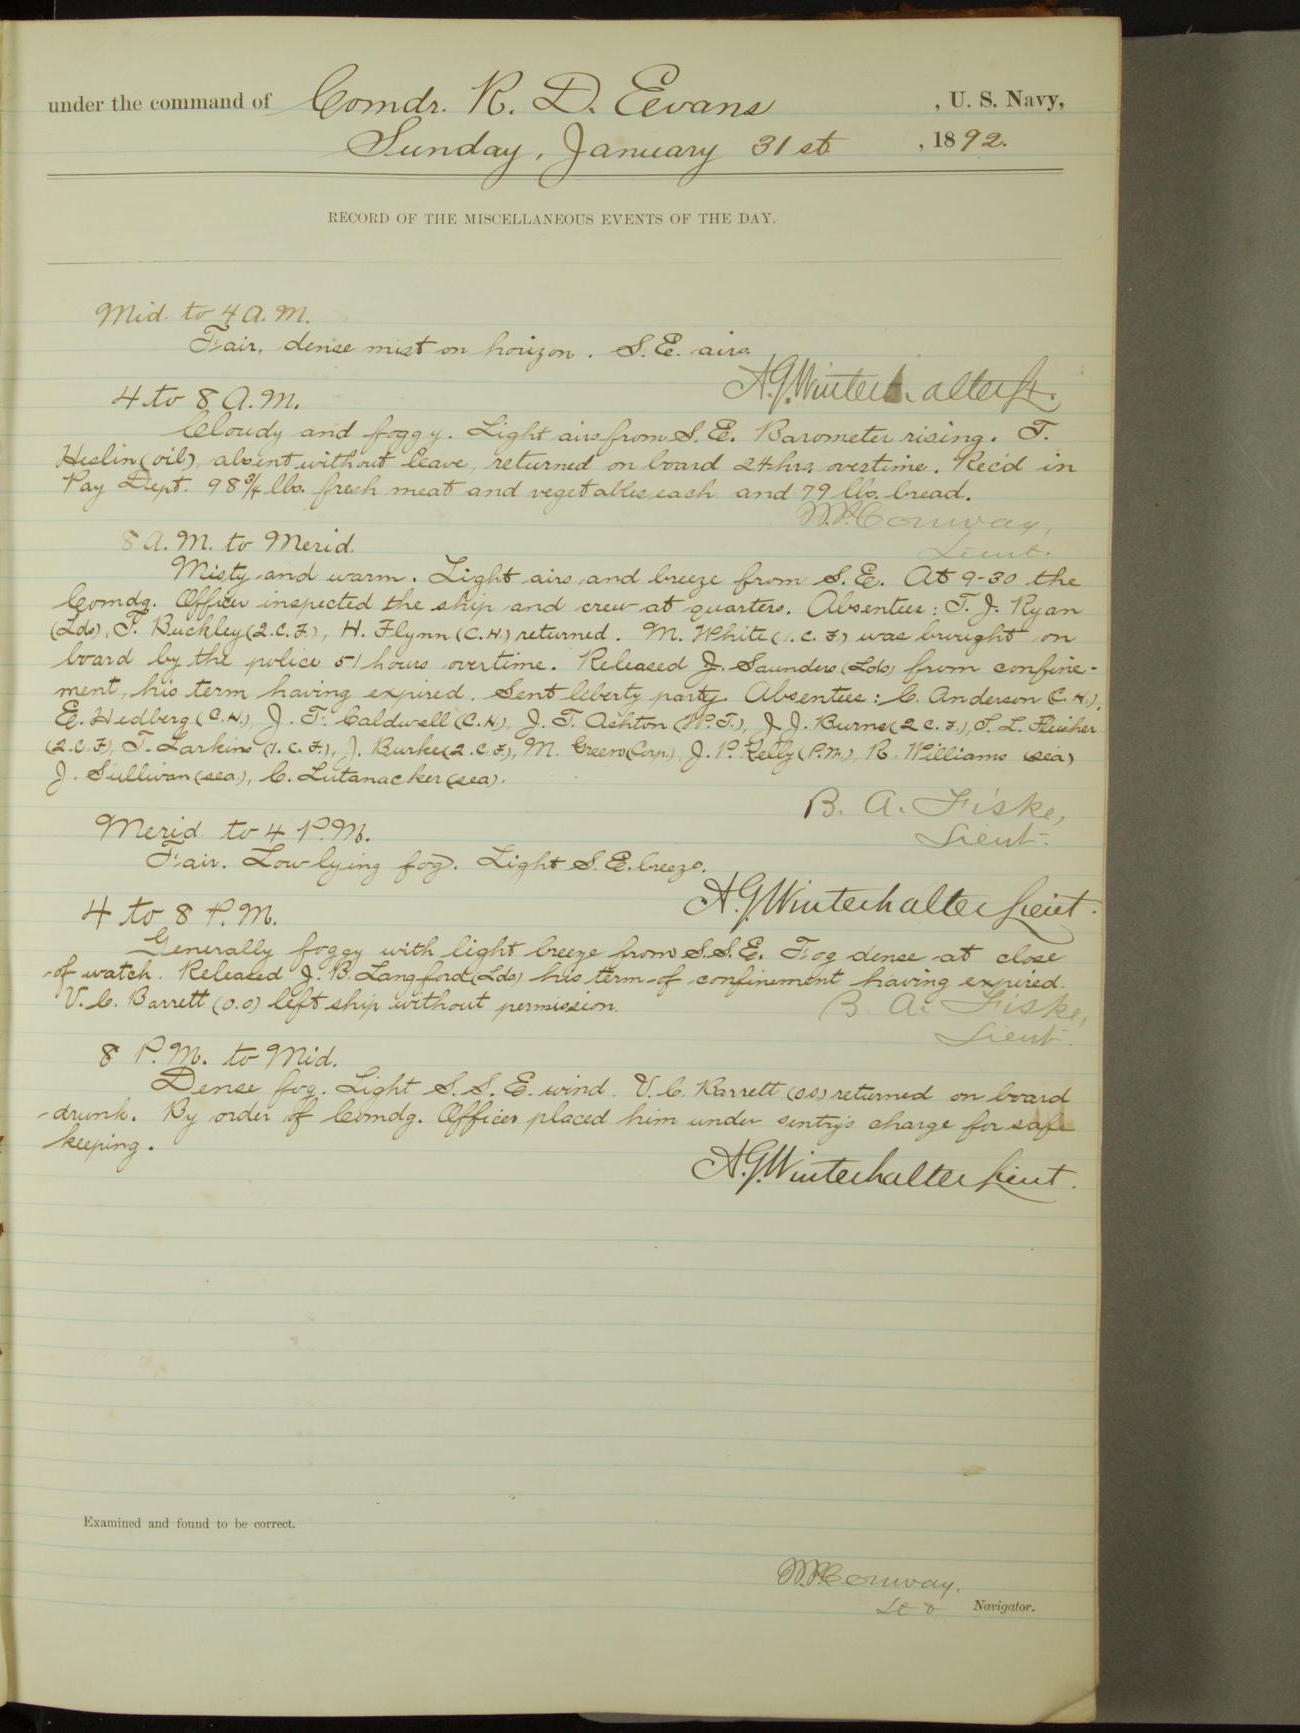 under the command of Comdr. R. D. Eevans , U. S. Navy,
Sunday, January 31st , 1892.
RECORD OF THE MISCELLANEOUS EVENTS OF THE DAY.
Mid. to 4 A. M.
Fair, dense mist on horizon. S. E. airs.
A.G. Winterhalter Lt.
4 to 8 A. M.
Cloudy and foggy. Light airs from S. E. Barometer rising. T.
Heslin (oil), absent without leave, returned on board 24 hrs. overtime. Rec'd in
Pay Dept. 98 3/4 lbs. fresh meat and vegetables each and 79 lbs. bread.
W.P. Conway,
Lieut.
8 A. M. to Merid.
Misty and warm. Light airs and breeze from S. E. At 9-30 the
Comdg. Officer inspected the ship and crew at quarters. Absentees: T. J. Ryan
(Lds), T. Buckley (2.C.F.), H. Flynn (C.H.) returned. M. White (1.C.F.) was brought on
board by the police 51 hours overtime. Released J. Saunders (Lds) from confine-
ment, his term having expired. Sent liberty party. Absentees: C. Anderson (C.H.),
E. Hedberg (C.H.), J. T. Caldwell (C.H.), J. T. Ashton (W.T.), J. J. Burns (2.C.F.), T. L. Fleisher
(2.C.F), T. Larkins (1.C.F.), J. Burke (2.C.F), M. Green (Corp.), J. P. Kelly (P.M.), R. Williams (sea)
J. Sullivan (sea.), C. Lutanacker (sea).
B. A. Fiske,
Lieut.
Merid. to 4 P. M.
Fair. Low lying fog. Light S. E. breeze.
A. G. Winterhalter Lieut.
4 to 8 P. M.
Generally foggy with light breeze from S. S. E. Fog dense at close
of watch. Released J. B. Langford (Lds) his term of confinement having expired.
V. C. Barrett (O.S) left ship without permission.
B. A. Fiske,
Lieut.
8 P. M. to Mid.
Dense fog. Light S. S. E. wind. V. C. Barrett (O.S) returned on board
drunk. By order of Comdg. Officer placed him under sentry's charge for safe
keeping.
A. G. Winterhalter Lieut.
Examined and found to be correct.
W.P. Conway,
Navigator.